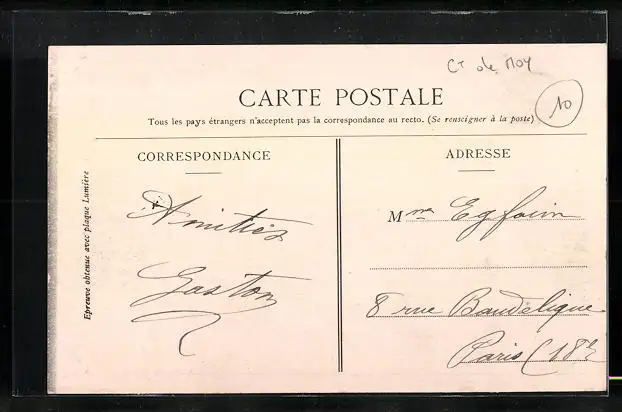 Ct de Moy
10
CARTE POSTALE
Tous les pays étrangers n'acceptent pas la correspondance au recto. (Se renseigner à la poste)
CORRESPONDANCE
Amitiés
Gaston
Epreuve obtenue avec plaque Lumière
ADRESSE
Mme Egfoin
8 rue Baudelique
Paris (18e